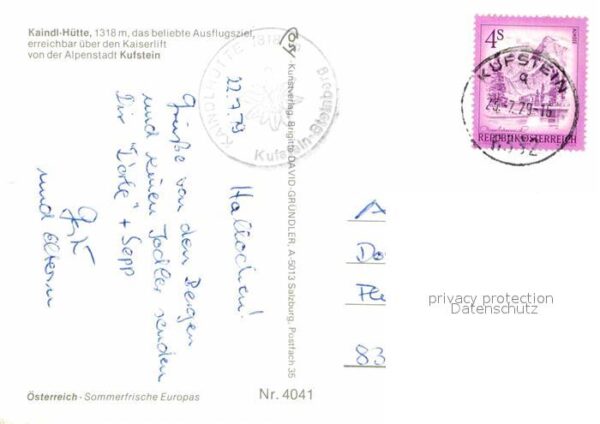 Kaindl-Hütte, 1318 m, das beliebte Ausflugsziel,
erreichbar über den Kaiserlift
von der Alpenstadt Kufstein
KAINDLHÜTTE 1318 m
Kufstein-
22.7.79
Hallöchen!
Grüße von den Bergen
und einen Jodler senden
Dir
+ Sepp
und Eltern
Kunstverlag, Brigitte DAVID-GRÜNDLER, A-5013 Salzburg, Postfach 35
4S
KUFSTEIN
a
REPUBLIK ÖSTERREICH
A
Do
Fle
83
privacy protection
Datenschutz
Österreich - Sommerfrische Europas
Nr. 4041